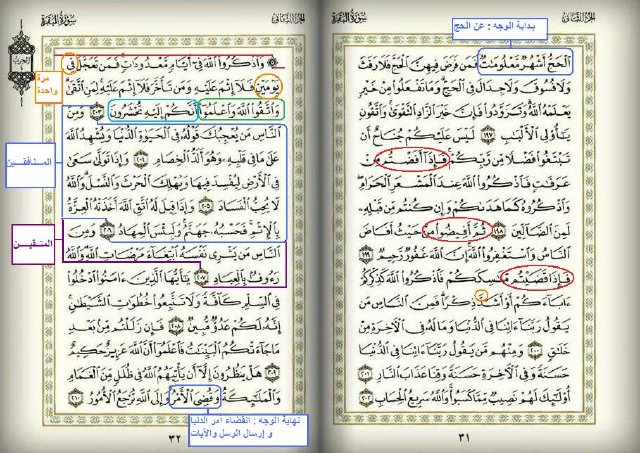 الجزء الثاني
سورة البقرة
بداية الوجه : عن الحج
الحج أشهر معلومات فمن فرض فيهن الحج فلا رفث
ولا فسوق ولا جدال في الحج وما تفعلوا من خير
يعلمه الله وتزودوا فإن خير الزاد التقوى واتقون
يا أولي الألباب ١٩٧ ليس عليكم جناح أن
تبتغوا فضلا من ربكم فإذا أفضتم من
عرفات فاذكروا الله عند المشعر الحرام
واذكروه كما هداكم وإن كنتم من قبله
لمن الضالين ١٩٨ ثم أفيضوا من حيث أفاض
الناس واستغفروا الله إن الله غفور رحيم ١٩٩
فإذا قضيتم مناسككم فاذكروا الله كذكركم
آباءكم أو أشد ذكرا فمن الناس من
يقول ربنا آتنا في الدنيا وما له في الآخرة من
خلاق ٢٠٠ ومنهم من يقول ربنا آتنا في الدنيا
حسنة وفي الآخرة حسنة وقنا عذاب النار ٢٠١
أولئك لهم نصيب مما كسبوا والله سريع الحساب ٢٠٢
٣١
الجزء الثاني
سورة البقرة
الحزب
مرة واحدة
واذكروا الله في أيام معدودات فمن تعجل في
يومين فلا إثم عليه ومن تأخر فلا إثم عليه لمن اتقى
واتقوا الله واعلموا أنكم إليه تحشرون ٢٠٣ ومن
الناس من يعجبك قوله في الحياة الدنيا ويشهد الله
على ما في قلبه وهو ألد الخصام ٢٠٤ وإذا تولى سعى
في الأرض ليفسد فيها ويهلك الحرث والنسل والله
لا يحب الفساد ٢٠٥ وإذا قيل له اتق الله أخذته العزة
بالإثم فحسبه جهنم ولبئس المهاد ٢٠٦ ومن
الناس من يشري نفسه ابتغاء مرضات الله والله
رءوف بالعباد ٢٠٧ يا أيها الذين آمنوا ادخلوا
في السلم كافة ولا تتبعوا خطوات الشيطان
إنه لكم عدو مبين ٢٠٨ فإن زللتم من بعد
ما جاءتكم البينات فاعلموا أن الله عزيز حكيم
٢٠٩ هل ينظرون إلا أن يأتيهم الله في ظلل من الغمام
والملائكة وقضي الأمر وإلى الله ترجع الأمور ٢١٠
المنافقين
المتقين
نهاية الوجه : انقضاء أمر الدنيا
و إرسال الرسل والآيات
٣٢